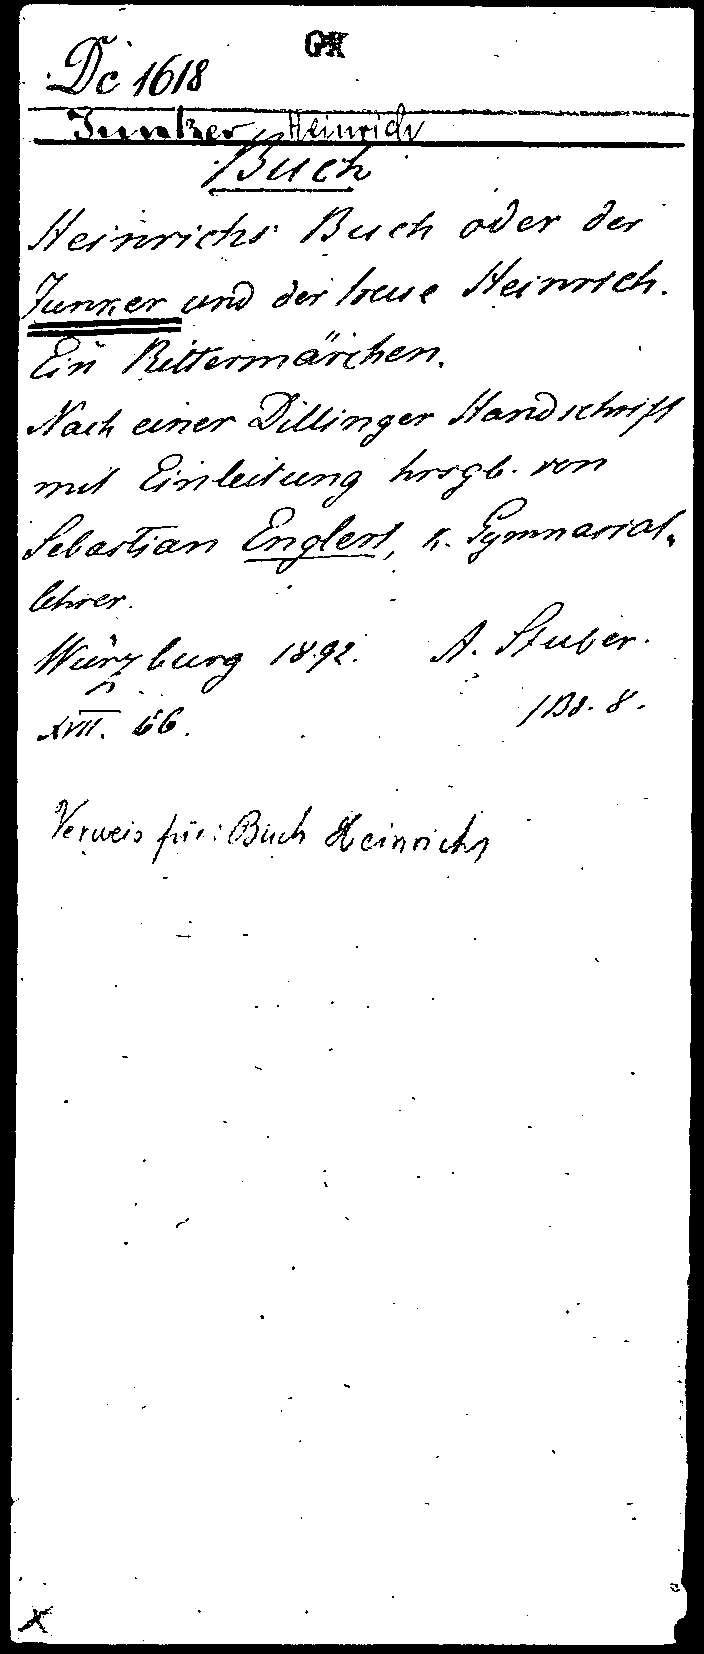 GK
Dc 1618
Junker Heinrich
Buch
Heinrichs Buch oder der
Junker und der treue Heinrich.
Ein Rittermärchen.
Nach einer Dillinger Handschrift
mit Einleitung hrsgb. von
Sebastian Englert, K. Gymnasial-
lehrer.
Würzburg 1892. A. Stuber.
XVII. 66. 1 Bd. 8.
Verweis für: Buch Heinrichs
X